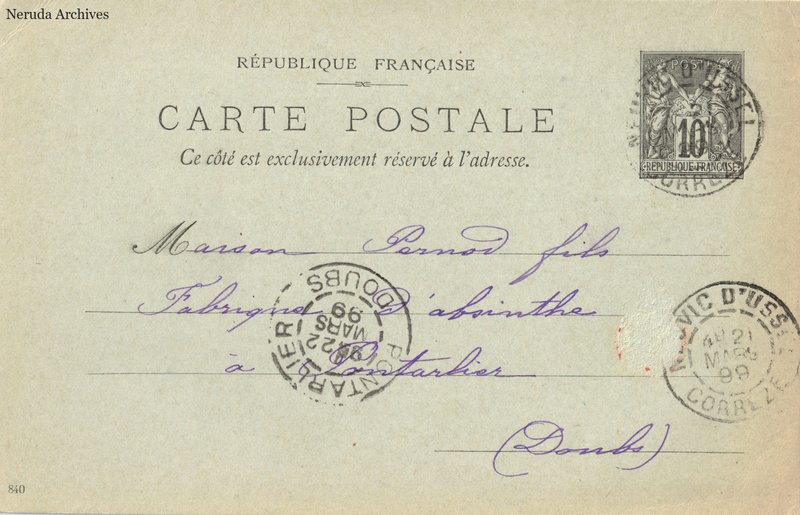 Neruda Archives
RÉPUBLIQUE FRANÇAISE
CARTE POSTALE
Ce côté est exclusivement réservé à l'adresse.
POSTES
10
RÉPUBLIQUE FRANÇAISE
NEUVIC D'USSEL
CORRÈZE
Maison Pernod fils
Fabrique d'absinthe
à Pontarlier
(Doubs)
PONTARLIER
22
MARS
99
DOUBS
NEUVIC D'USS
21
MARS
99
CORRÈZE
840